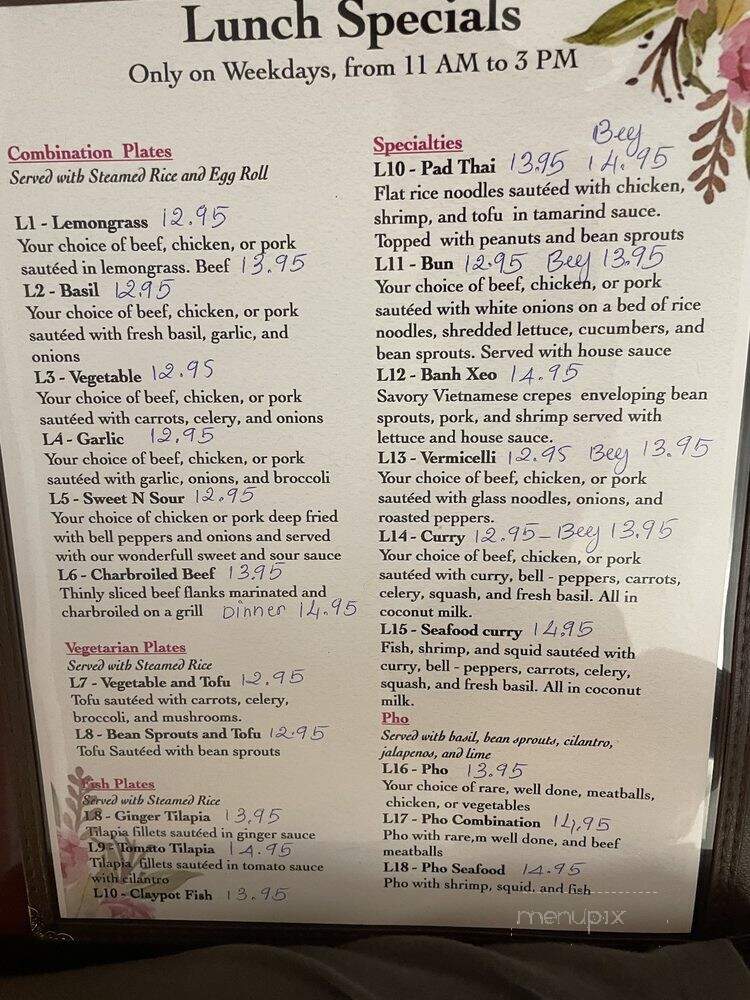 Lunch Specials
Only on Weekdays, from 11 AM to 3 PM
Combination Plates
Served with Steamed Rice and Egg Roll
L1 - Lemongrass 12.95
Your choice of beef, chicken, or pork
sautéed in lemongrass. Beef 13.95
L2 - Basil 12.95
Your choice of beef, chicken, or pork
sautéed with fresh basil, garlic, and
onions
L3 - Vegetable 12.95
Your choice of beef, chicken, or pork
sautéed with carrots, celery, and onions
L4 - Garlic 12.95
Your choice of beef, chicken, or pork
sautéed with garlic, onions, and broccoli
L5 - Sweet N Sour 12.95
Your choice of chicken or pork deep fried
with bell peppers and onions and served
with our wonderfull sweet and sour sauce
L6 - Charbroiled Beef 13.95
Thinly sliced beef flanks marinated and
charbroiled on a grill Dinner 14.95
Vegetarian Plates
Served with Steamed Rice
L7 - Vegetable and Tofu 12.95
Tofu sautéed with carrots, celery,
broccoli, and mushrooms.
L8 - Bean Sprouts and Tofu 12.95
Tofu Sautéed with bean sprouts
Fish Plates
Served with Steamed Rice
L8 - Ginger Tilapia 13.95
Tilapia fillets sautéed in ginger sauce
L9 - Tomato Tilapia 14.95
Tilapia fillets sautéed in tomato sauce
with cilantro
L10 - Claypot Fish 13.95
Specialties
Beef
L10 - Pad Thai 13.95 14.95
Flat rice noodles sautéed with chicken,
shrimp, and tofu in tamarind sauce.
Topped with peanuts and bean sprouts
L11 - Bun 12.95 Beef 13.95
Your choice of beef, chicken, or pork
sautéed with white onions on a bed of rice
noodles, shredded lettuce, cucumbers, and
bean sprouts. Served with house sauce
L12 - Banh Xeo 14.95
Savory Vietnamese crepes enveloping bean
sprouts, pork, and shrimp served with
lettuce and house sauce.
L13 - Vermicelli 12.95 Beef 13.95
Your choice of beef, chicken, or pork
sautéed with glass noodles, onions, and
roasted peppers.
L14 - Curry 12.95 - Beef 13.95
Your choice of beef, chicken, or pork
sautéed with curry, bell - peppers, carrots,
celery, squash, and fresh basil. All in
coconut milk.
L15 - Seafood curry 14.95
Fish, shrimp, and squid sautéed with
curry, bell - peppers, carrots, celery,
squash, and fresh basil. All in coconut
milk.
Pho
Served with basil, bean sprouts, cilantro,
jalapenos, and lime
L16 - Pho 13.95
Your choice of rare, well done, meatballs,
chicken, or vegetables
L17 - Pho Combination 14.95
Pho with rare,m well done, and beef
meatballs
L18 - Pho Seafood 14.95
Pho with shrimp, squid, and fish
menupix